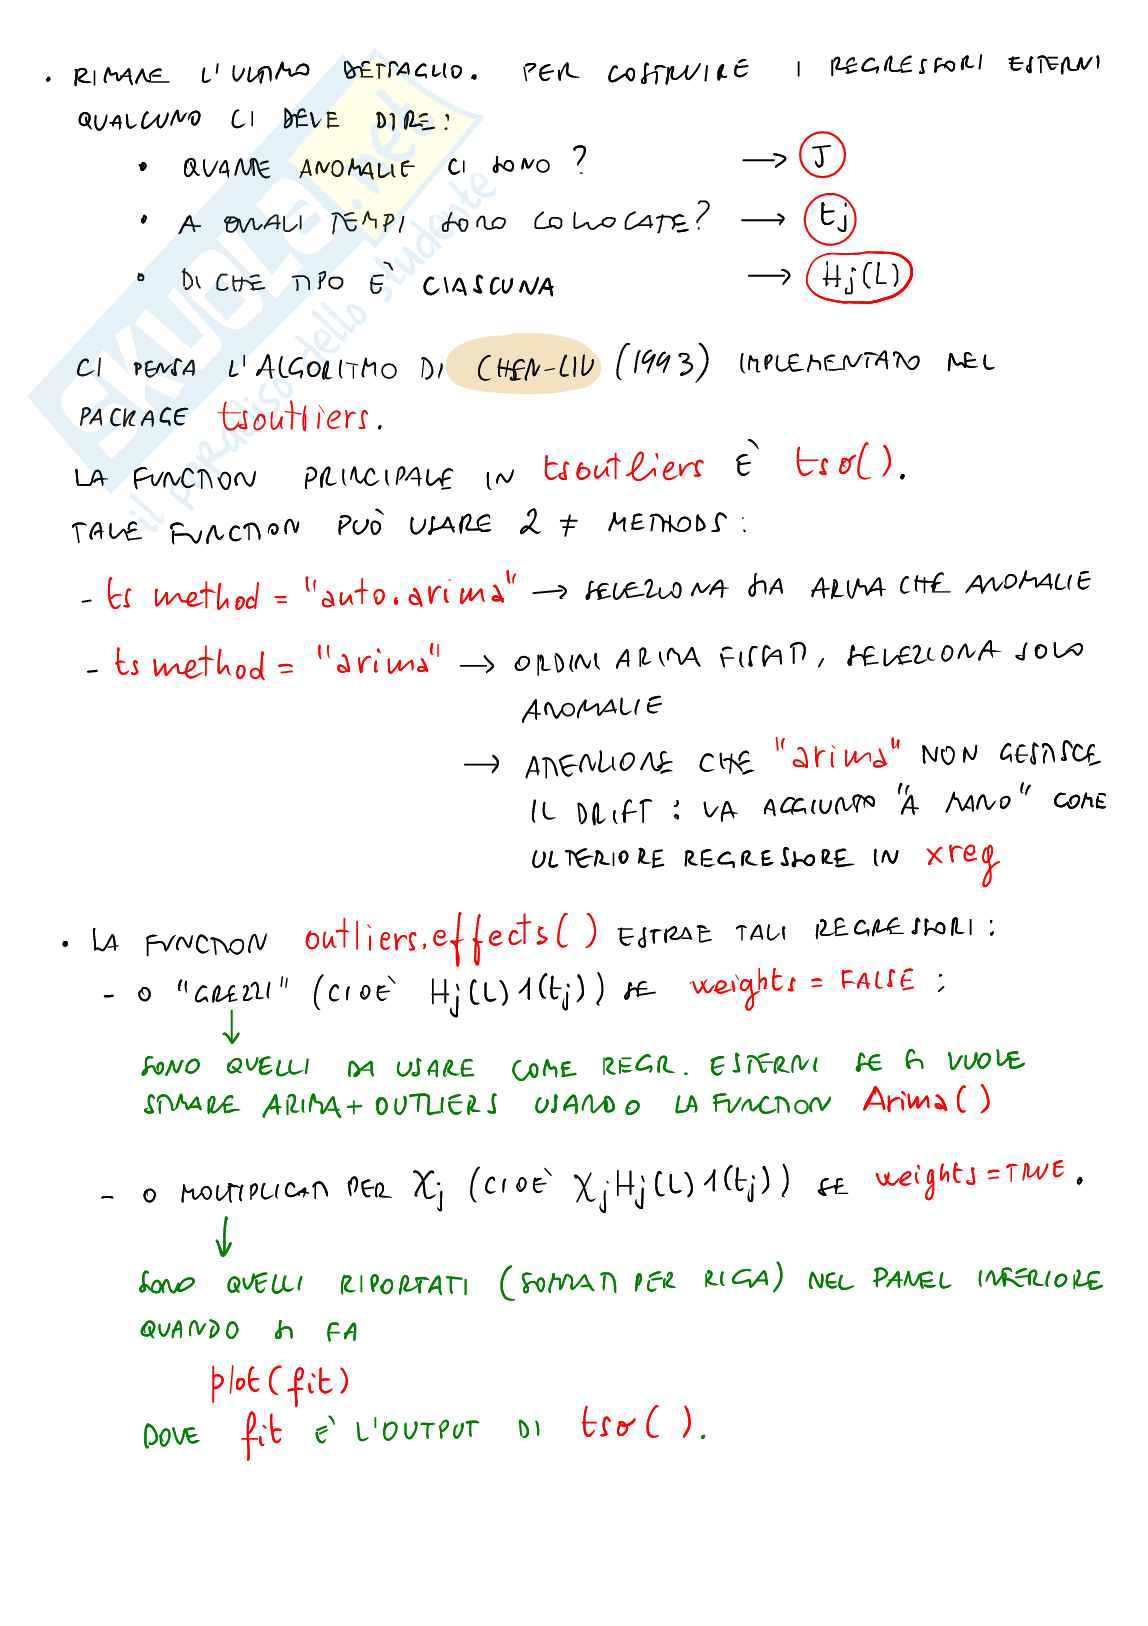 • RIMANE L'ULTIMO DETTAGLIO. PER COSTRUIRE I REGRESSORI ESTERNI
QUALCUNO CI DEVE DIRE:
• QUANTE ANOMALIE CI SONO? → J
• A QUALI TEMPI SONO COLLOCATE? → tj
• DI CHE TIPO È CIASCUNA → Hj(L)
CI PENSA L'ALGORITMO DI CHEN-LIU (1993) IMPLEMENTATO NEL
PACKAGE tsoutliers.
LA FUNCTION PRINCIPALE IN tsoutliers È tso().
TALE FUNCTION PUÒ USARE 2 ≠ METHODS:
- ts method = "auto.arima" → SELEZIONA SIA ARIMA CHE ANOMALIE
- ts method = "arima" → ORDINI ARIMA FISSATI, SELEZIONA SOLO
ANOMALIE
→ ATTENZIONE CHE "arima" NON GESTISCE
IL DRIFT: VA AGGIUNTO "A MANO" COME
ULTERIORE REGRESSORE IN xreg
• LA FUNCTION outliers.effects() ESTRAE TALI REGRESSORI:
- O "GREZZI" (CIOÈ Hj(L)1(tj)) SE weights = FALSE;
↓
SONO QUELLI DA USARE COME REGR. ESTERNI SE SI VUOLE
STIMARE ARIMA+OUTLIERS USANDO LA FUNCTION Arima()
- O MOLTIPLICATI PER χj (CIOÈ χjHj(L)1(tj)) SE weights=TRUE.
↓
SONO QUELLI RIPORTATI (SOMMATI PER RIGA) NEL PANEL INFERIORE
QUANDO SI FA
plot(fit)
DOVE fit È L'OUTPUT DI tso().
SKUOLA.net
il paradiso dello studente